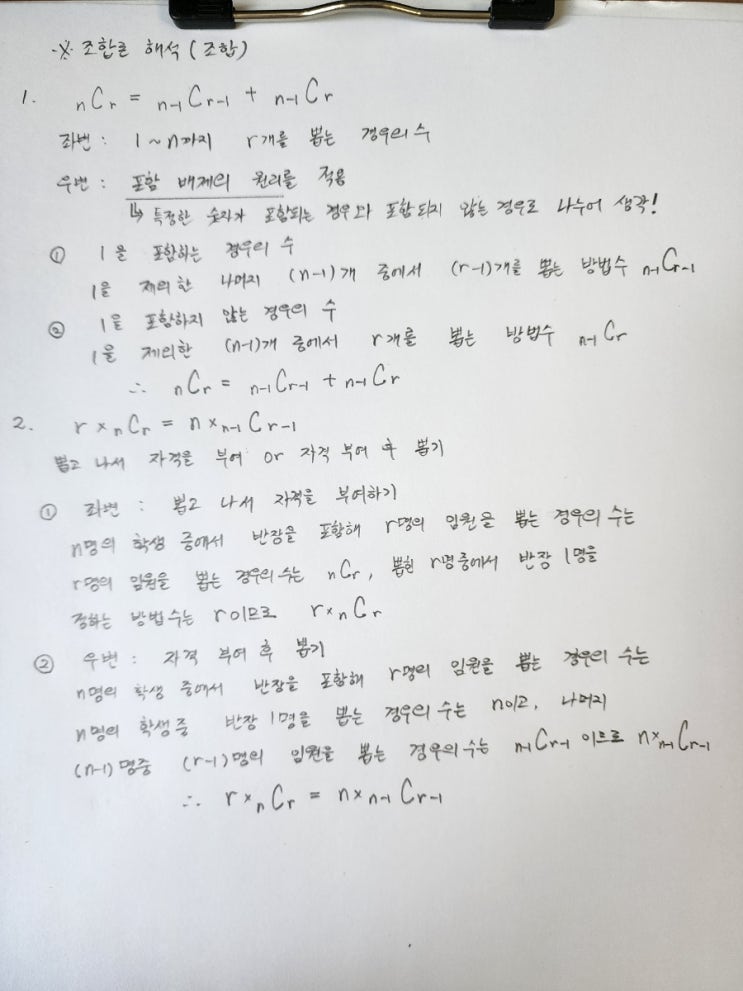 ※ 조합론 해석 (조합)
1. nCr = n-1Cr-1 + n-1Cr
좌변 : 1~n까지 r개를 뽑는 경우의 수
우변 : 포함 배제의 원리를 적용
↳ 특정한 숫자가 포함되는 경우와 포함되지 않는 경우로 나누어 생각!
① 1을 포함하는 경우의 수
1을 제외한 나머지 (n-1)개 중에서 (r-1)개를 뽑는 방법수 n-1Cr-1
② 1을 포함하지 않는 경우의 수
1을 제외한 (n-1)개 중에서 r개를 뽑는 방법수 n-1Cr
∴ nCr = n-1Cr-1 + n-1Cr
2. r×nCr = n×n-1Cr-1
뽑고 나서 자격을 부여 or 자격 부여 후 뽑기
① 좌변 : 뽑고 나서 자격을 부여하기
n명의 학생 중에서 반장을 포함해 r명의 임원을 뽑는 경우의 수는
r명의 임원을 뽑는 경우의 수는 nCr, 뽑힌 r명중에서 반장 1명을
정하는 방법수는 r이므로 r×nCr
② 우변 : 자격 부여 후 뽑기
n명의 학생 중에서 반장을 포함해 r명의 임원을 뽑는 경우의 수는
n명의 학생중 반장 1명을 뽑는 경우의 수는 n이고, 나머지
(n-1)명중 (r-1)명의 임원을 뽑는 경우의 수는 n-1Cr-1 이므로 n×n-1Cr-1
∴ r×nCr = n×n-1Cr-1